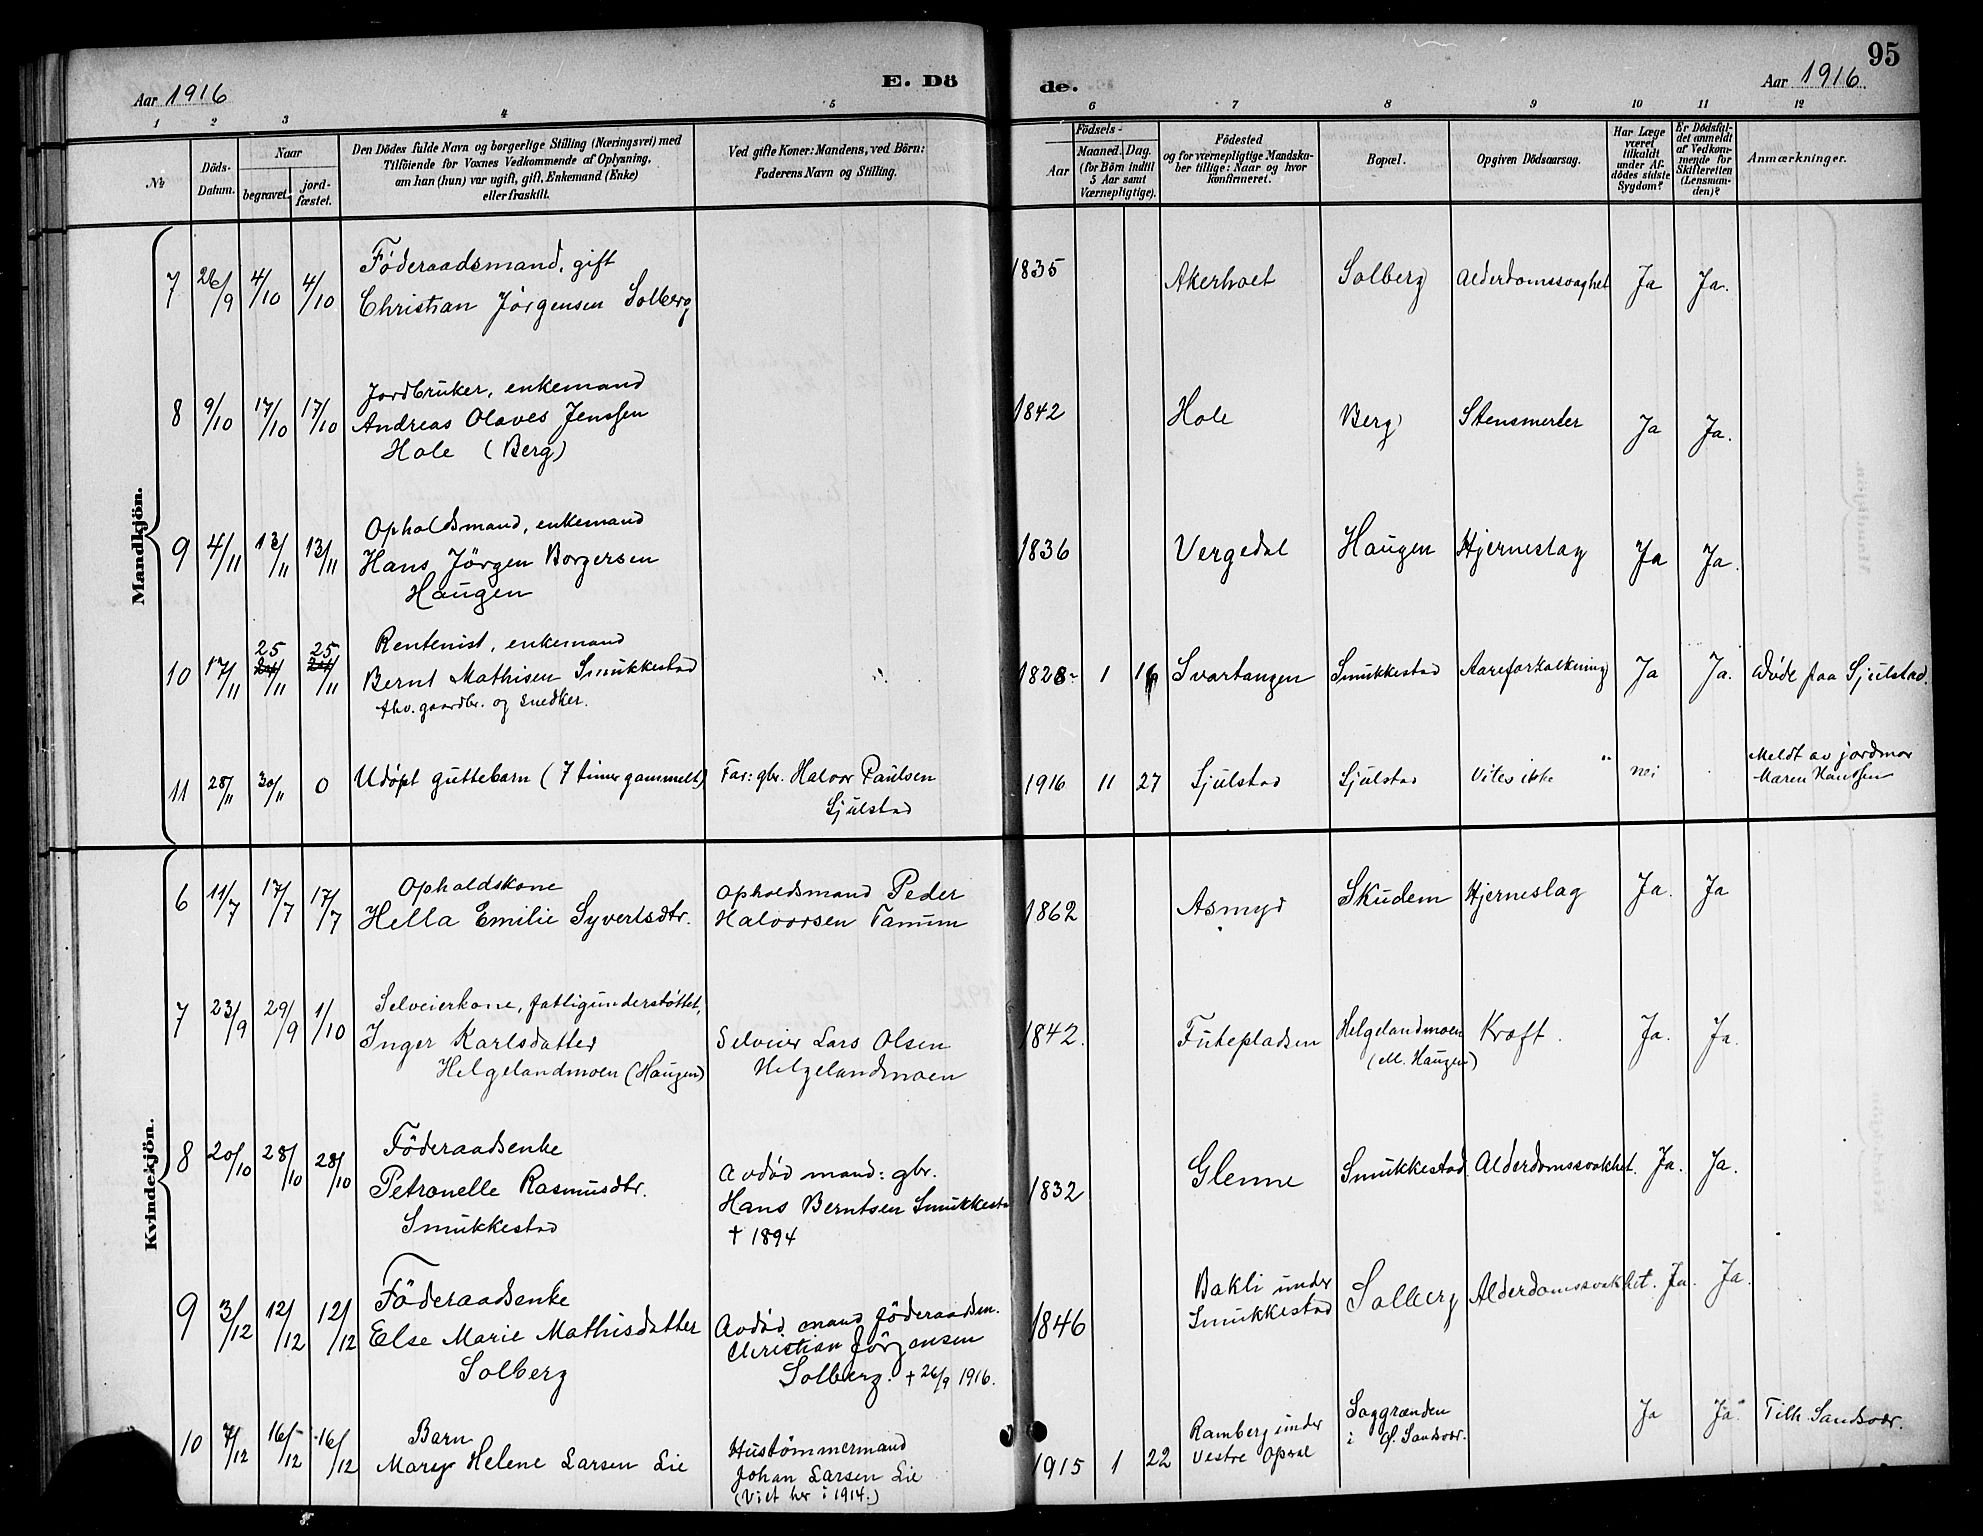 95
Aar 1916
E. Dö
de.
Aar 1916
1 2 3 4 5 6 7 8 9 10 11 12
No
Döds-
Datum.
Naar
begravet.
jord-
fæstet.
Den Dödes fulde Navn og borgerlige Stilling (Næringsvei) med
Tilföiende for Voxnes Vedkommende af Oplysning,
om han (hun) var ugift, gift, Enkemand (Enke)
eller fraskilt.
Ved gifte Koner: Mandens, ved Börn:
Faderens Navn og Stilling.
Födsels-
Aar
Maaned. Dag.
(for Börn indtil
5 Aar samt
Værnepligtige).
Födested
og for værnepligtige Mandska-
ber tillige: Naar og hvor
konfirmeret.
Bopæl.
Opgiven Dödsaarsag.
Har Læge
været
tilkaldt
under Af-
dödes sidste
Sygdom?
Er Dödsfal-
det anmeldt
af Vedkom-
mende for
Skifteretten
(Lensman-
den)?
Anmærkninger.
Mandkjön.
7 26/9 4/10 4/10
Föderaadsmand, gift
Christian Jörgensen Solberg
1835 Akerholt Solberg Alderdomssvaghet Ja Ja.
8 9/10 17/10 17/10
Jordbruker, enkemand
Andreas Olaves Jenssen
Hole (Berg)
1842 Hole Berg Stensmerter Ja Ja.
9 4/11 13/11 13/11
Opholdsmand, enkemand
Hans Jörgen Borgersen
Haugen
1836 Vergedal Haugen Hjerneslag Ja Ja.
10 17/11 25/11 25/11
Rentenist, enkemand
Bernt Mathisen Smukkestad
fhv. gaardbr. og snedker.
1828 1 16 Svartangen Smukkestad Aareforkalkning Ja Ja. Døde paa Sjulstad.
11 28/11 30/11 0
Udøpt guttebarn (7 timer gammelt)
Far: gbr. Halvor Paulsen
Sjulstad
1916 11 27 Sjulstad Sjulstad Vites ikke nei
Meldt av jordmor
Maren Hanssen
Kvindekjön.
6 11/7 17/7 17/7
Opholdskone
Hella Emilie Syvertsdtr.
Opholdsmand Peder
Halvorsen Tanum
1862 Asmyr Skudem Hjerneslag Ja. Ja
7 23/9 29/9 1/10
Selveierkone, fattigunderstøttet,
Inger Karlsdatter
Helgelandmoen (Haugen)
Selveier Lars Olsen
Helgelandmoen
1842. Futepladsen Helgelandmoen
(M. Haugen)
Kræft. Ja. Ja.
8 20/10 28/10 28/10
Föderaadsenke
Petronelle Rasmusdtr.
Smukkestad
Avdød mand: gbr.
Hans Berntsen Smukkestad
† 1894
1832 Glenne Smukkestad Alderdomssvakhet. Ja. Ja.
9 3/12 12/12 12/12
Föderaadsenke
Else Marie Mathisdatter
Solberg
Avdød mand föderaadsm.
Christian Jörgensen
Solberg. † 26/9 1916.
1846 Bakli under
Smukkestad
Solberg Alderdomssvakhet. Ja. Ja.
10 7/12 16/12 16/12
Barn
Mary Helene Larsen Lie
Hustømmermand
Johan Larsen Lie
(Viet her i 1914.)
1915 1 22 Ramberg under
Vestre Opsal
Saggrenden
i Ø. Sandsvær.
Ja Ja Tilh. Sandsvær.